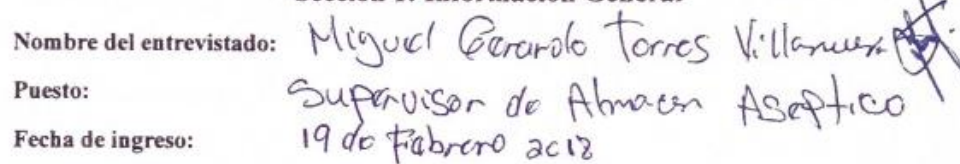 Sección 1. Información General
Nombre del entrevistado: Miguel Gerardo Torres Villanueva
Puesto: Supervisor de Almacen Aseptico
Fecha de ingreso: 19 de Febrero